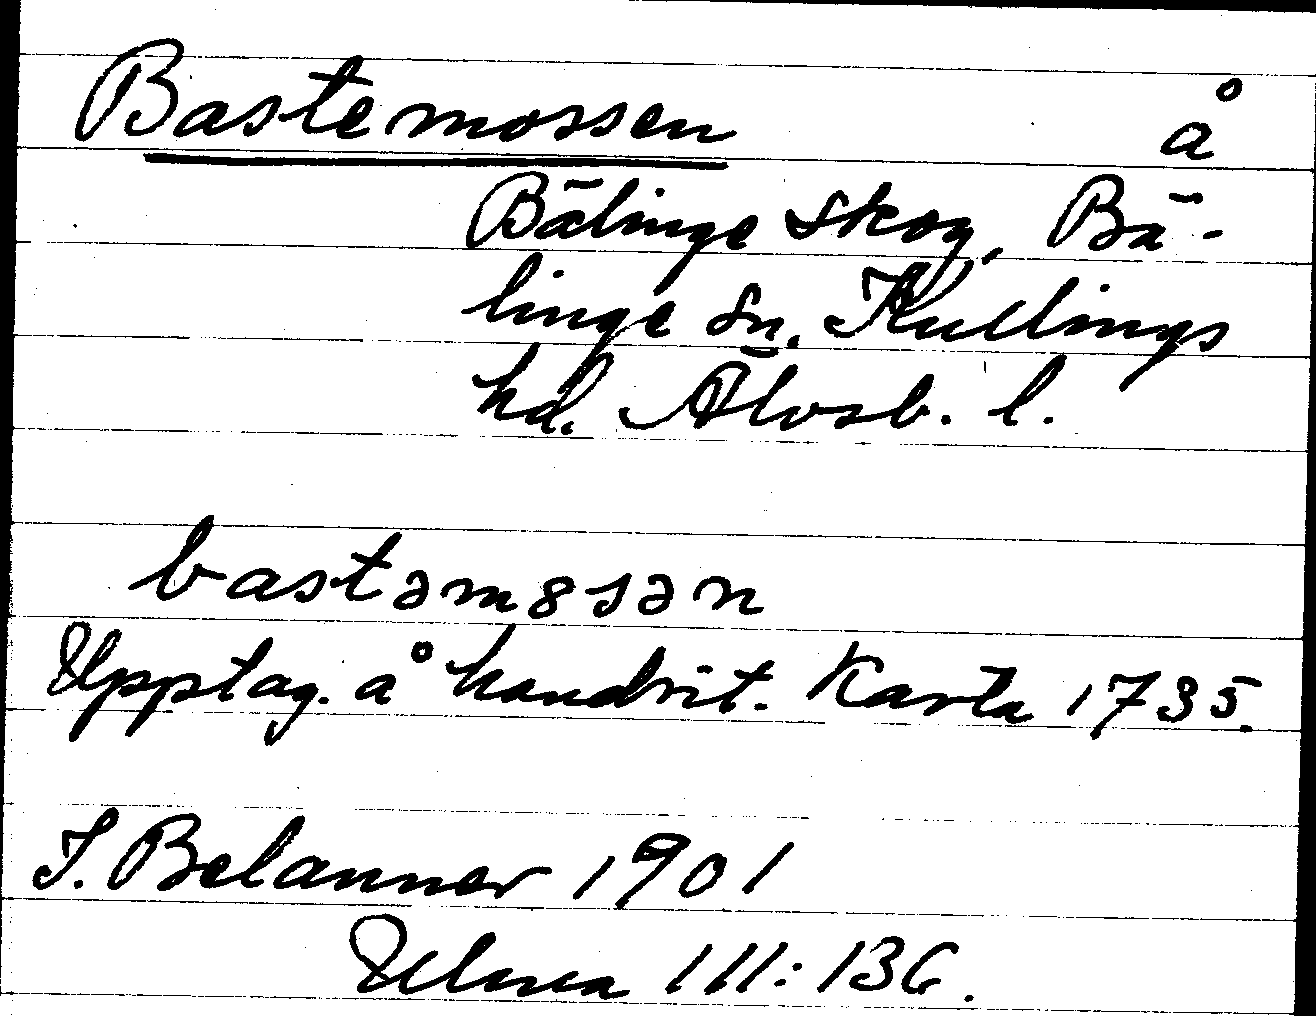 Bastemossen å
Bälinge skog, Bä-
linge sn. Kullings
hd. Älvsb. l.
bastəm8sən
Upptag. å handrit. Karta 1735.
J. Belanner 1901
Ulma 111:136.